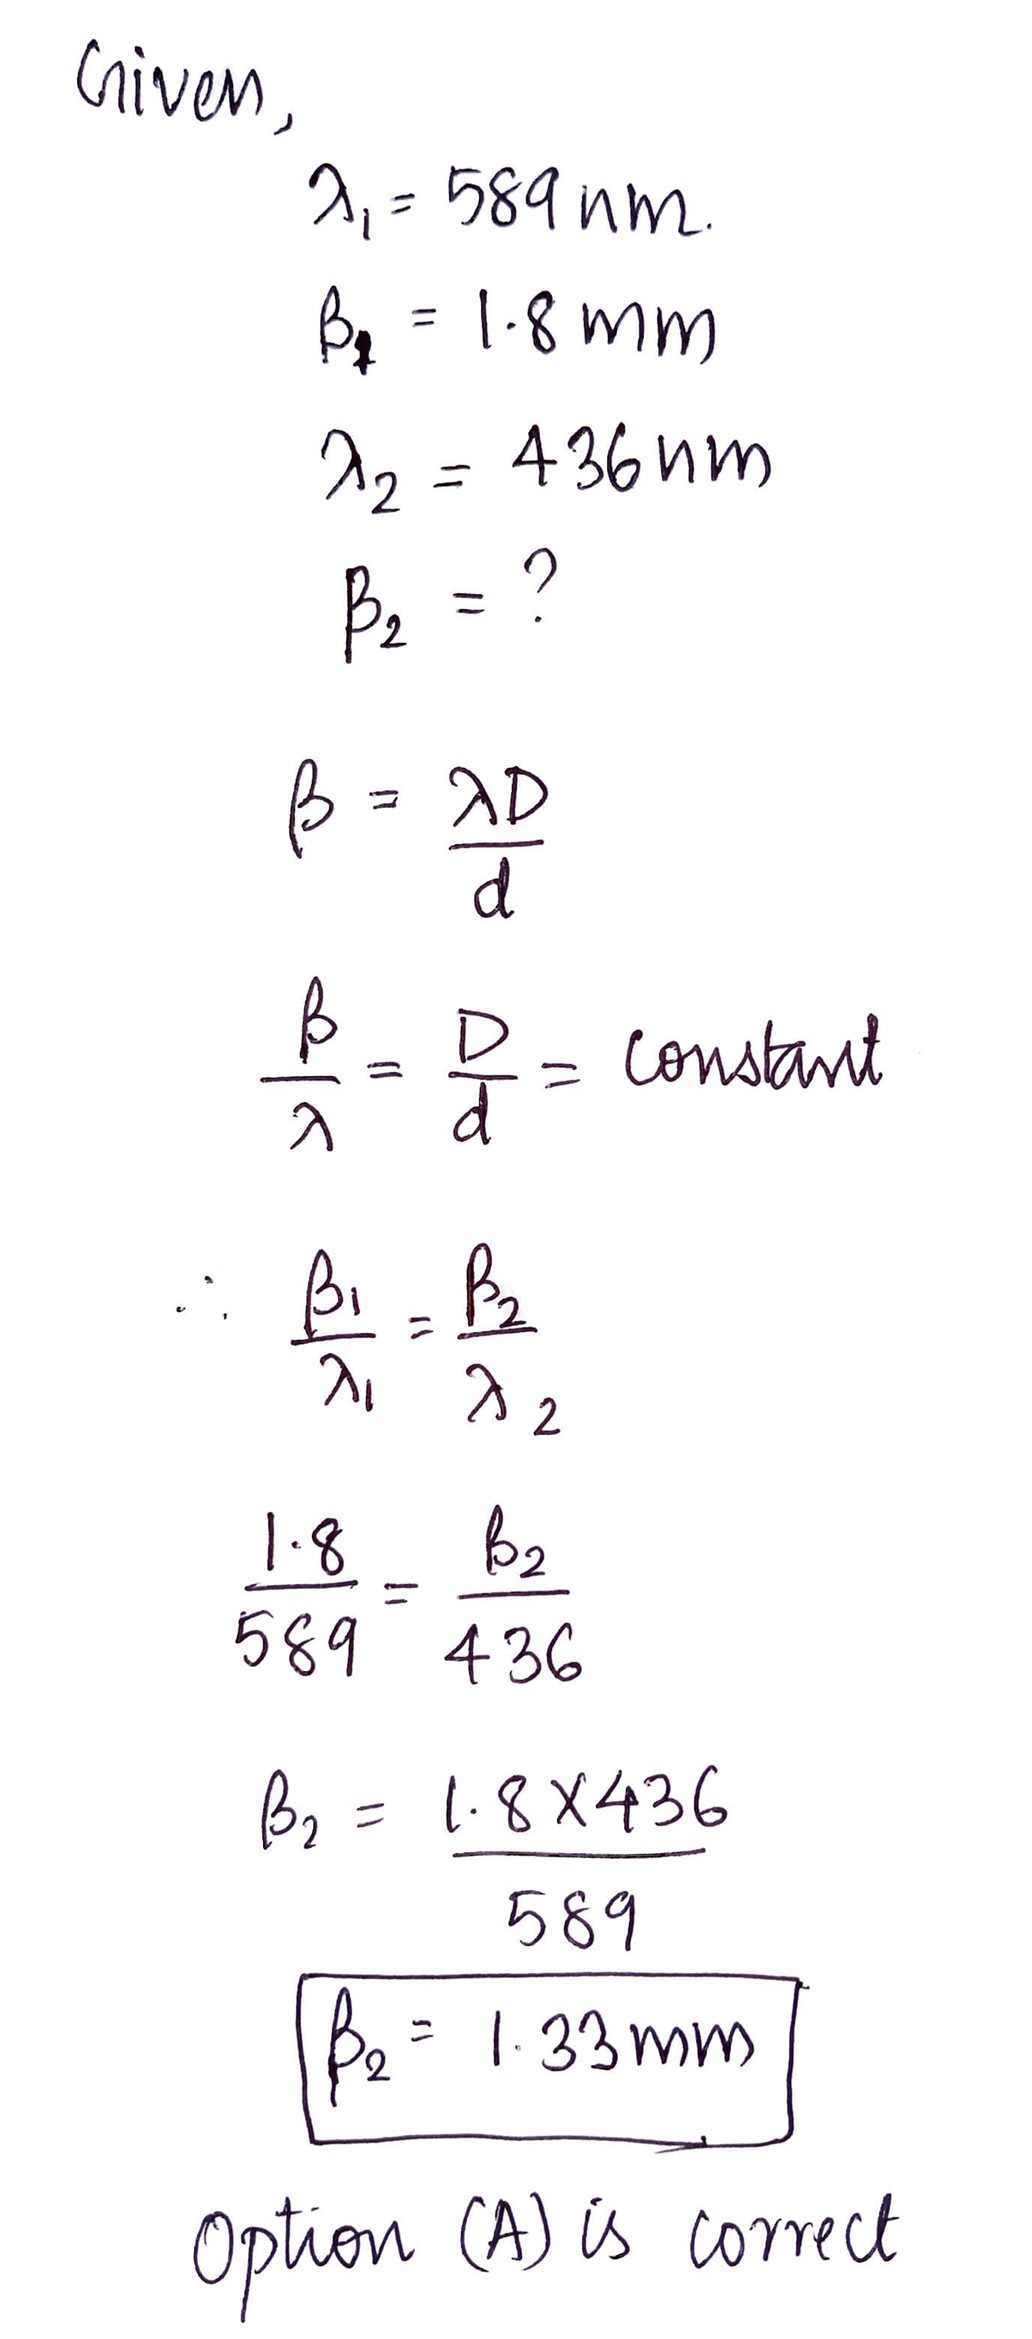 Given,
λ₁ = 589 nm.
β₁ = 1.8 mm
λ₂ = 436 nm
β₂ = ?
β = λD
d
β = D = constant
λ d
∴ β₁ = β₂
λ₁ λ₂
1.8 = β₂
589 436
β₂ = 1.8 X 436
589
β₂ = 1.33 mm
Option (A) is correct